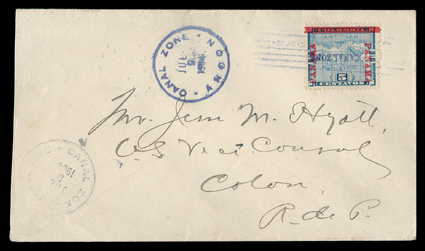 CANAL ZONE
ANCON
JUL
1904
COLOMBIA
PANAMA
CANAL ZONE
PANAMA
5
CENTAVOS
Mr. Jesse M. Hyatt,
U.S. Vice Consul
Colon,
R. de P.
CANAL ZONE
JUL
1904